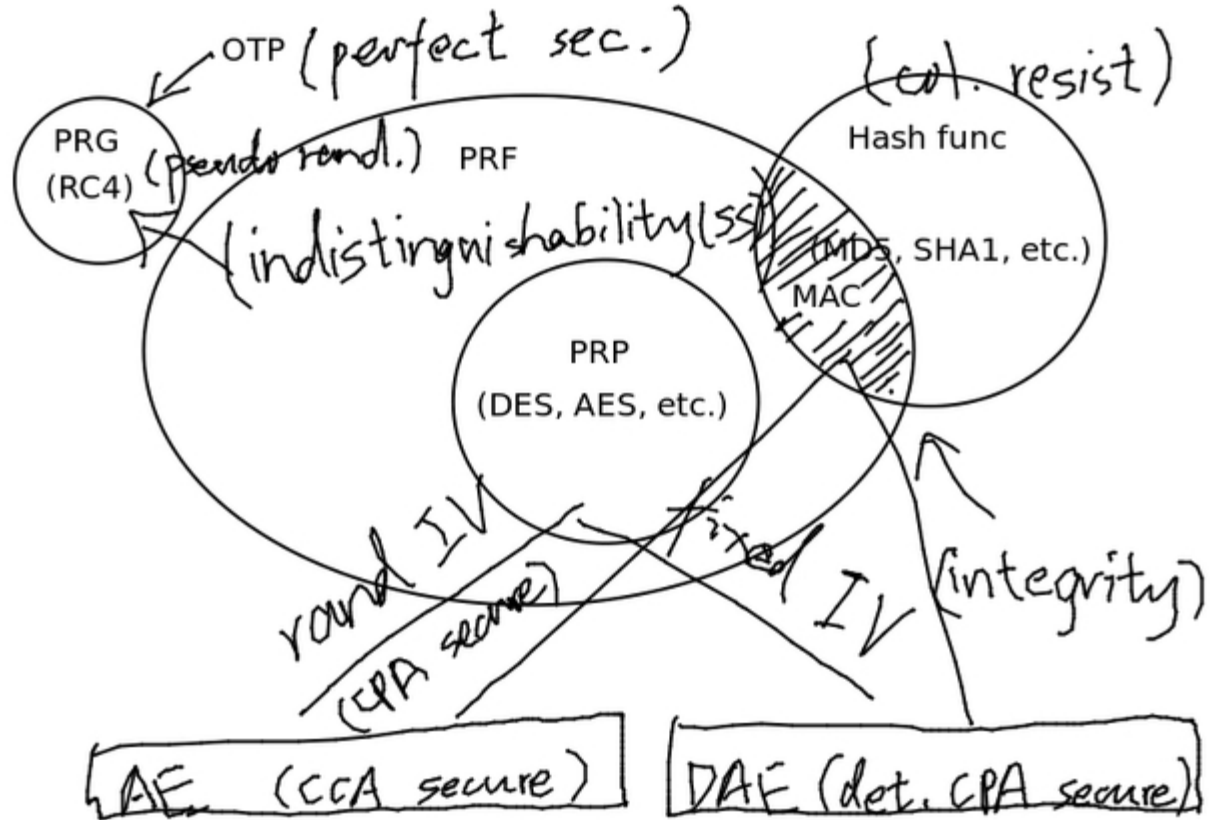 OTP (perfect sec.)
(col. resist)
PRG
(RC4)
(pseudo rand.)
PRF
Hash func
(indistinguishability (SS)
(MD5, SHA1, etc.)
MAC
PRP
(DES, AES, etc.)
rand IV
fixed IV
(CPA secure)
(integrity)
AE (CCA secure)
DAE (det. CPA secure)